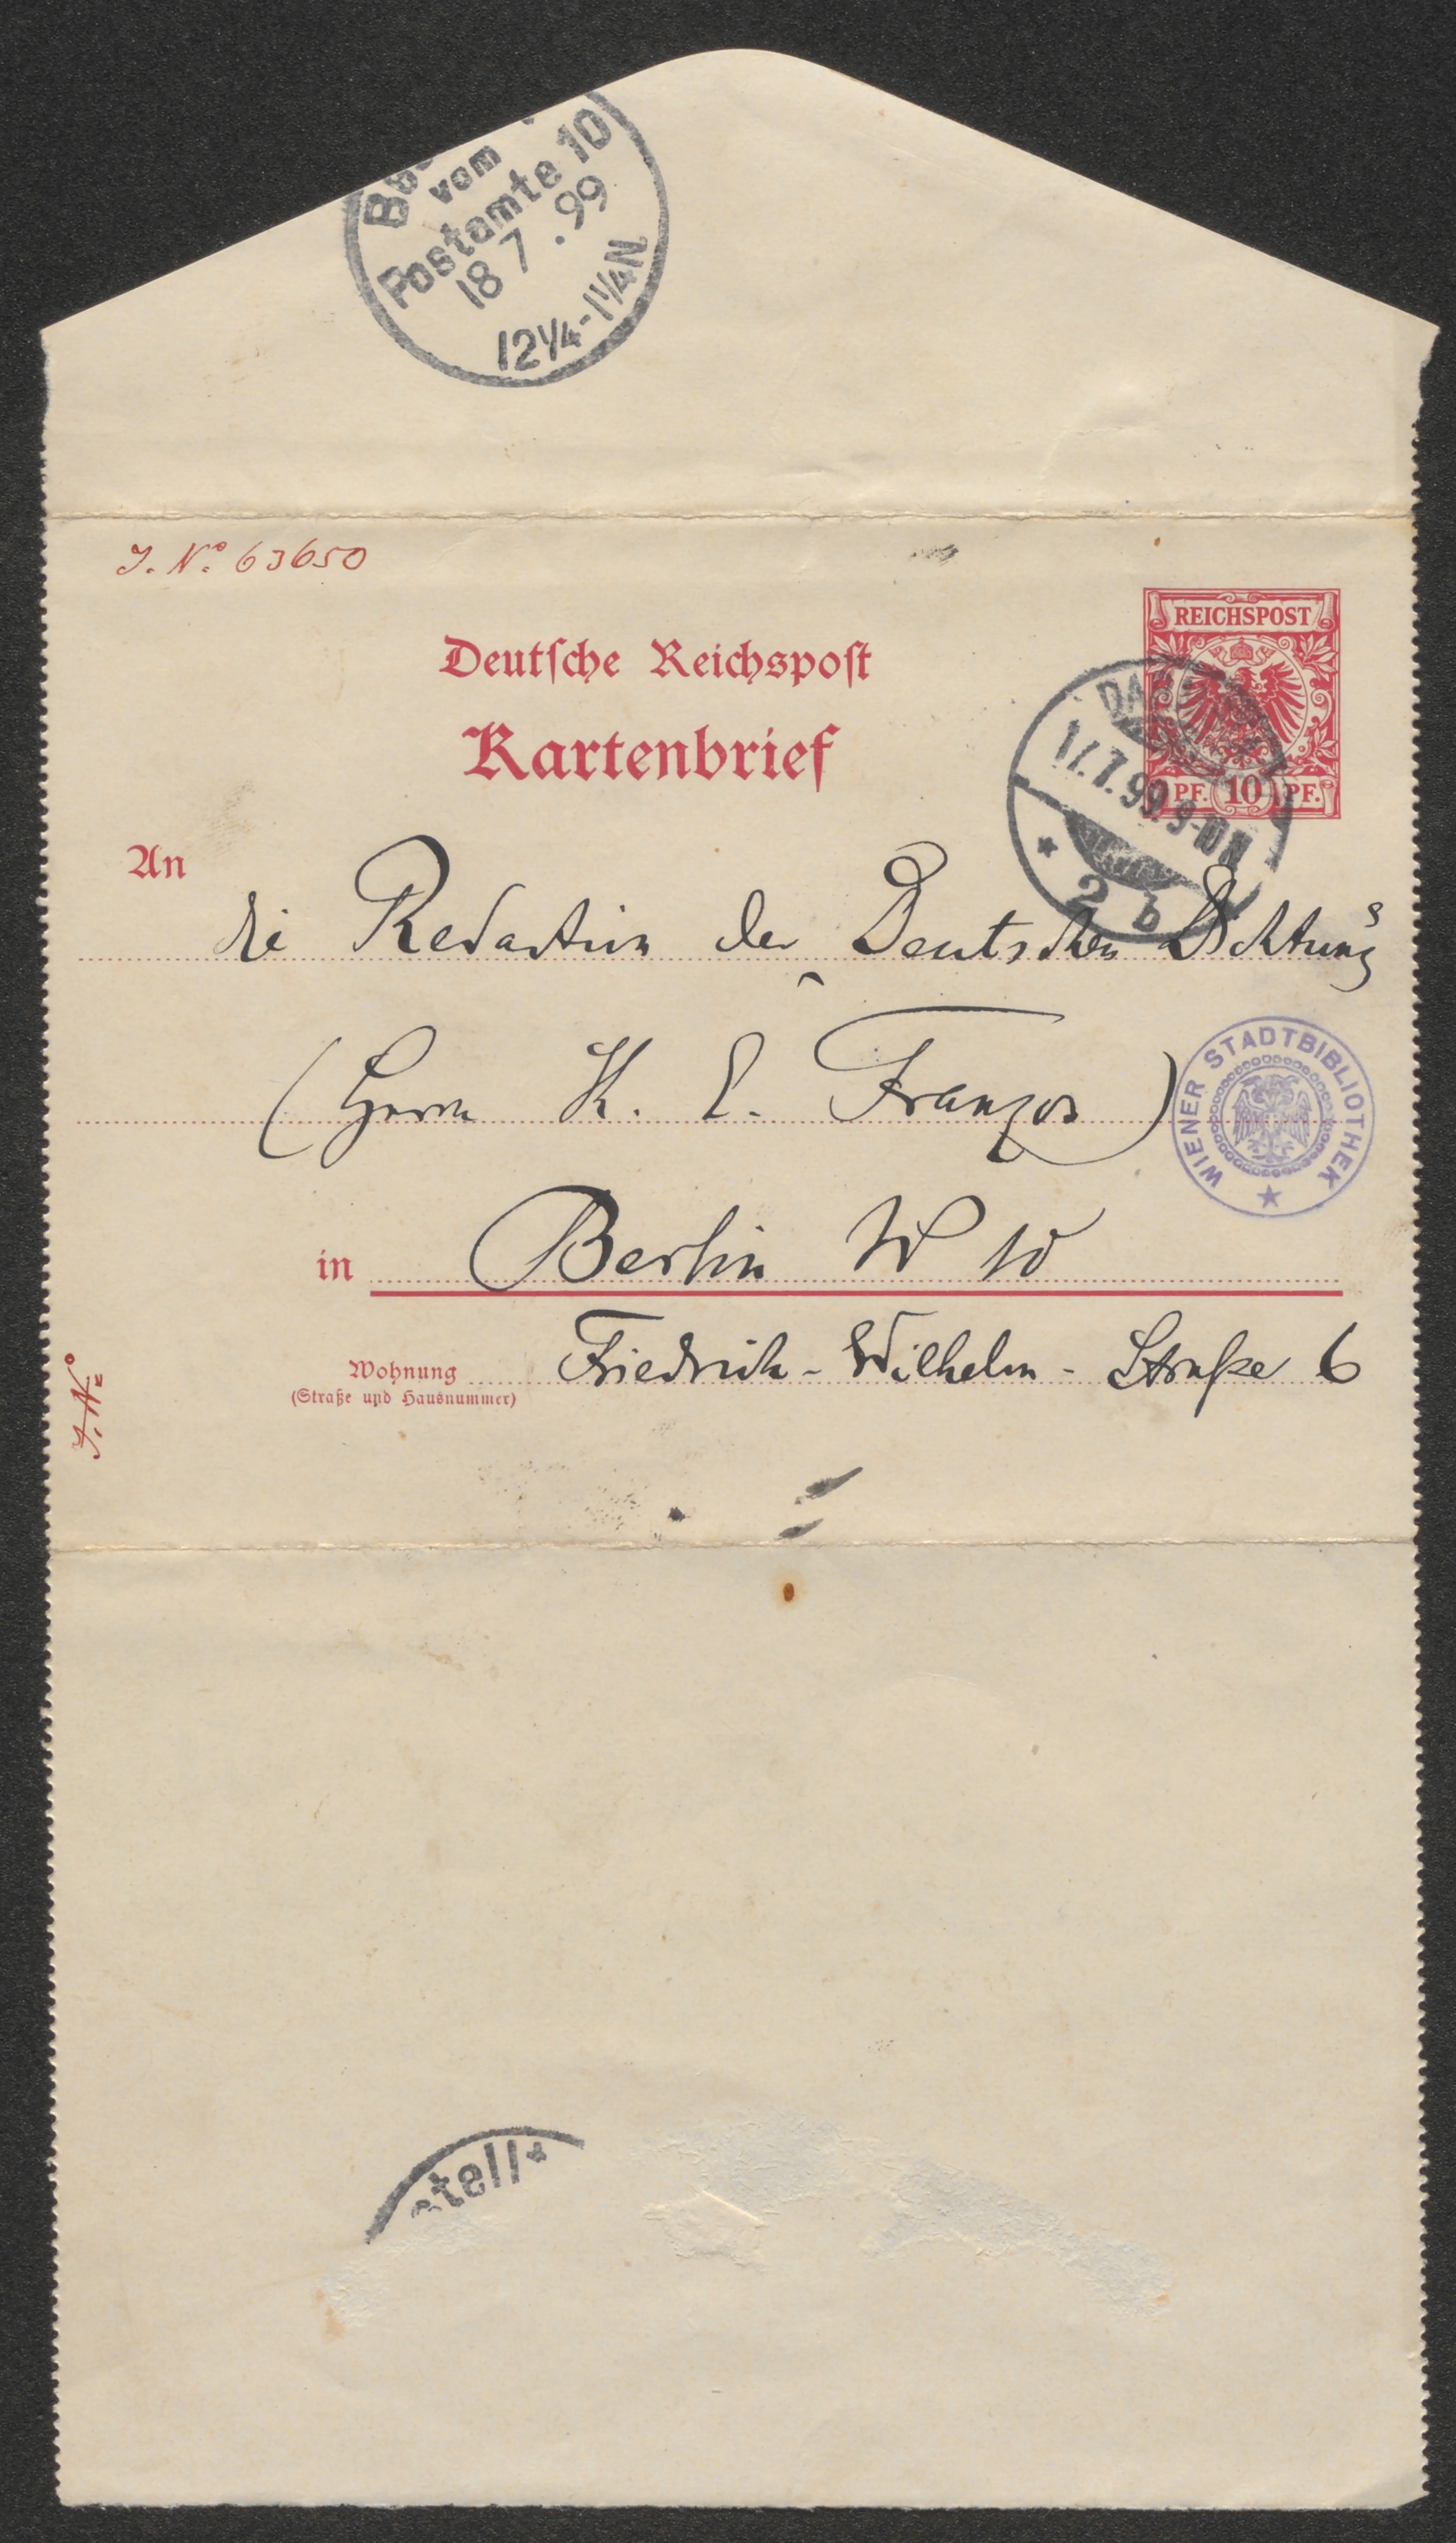 vom
Postamte 10
18 7 . 99
12¼-1¼N
J. No. 63650
Deutsche Reichspost
Kartenbrief
REICHSPOST
PF. 10 PF.
17.7.99 9-10N
* 2 b
An die Redaction der Deutschen Dichtung
(Herrn K. E. Franzos)
WIENER STADTBIBLIOTHEK
in Berlin W 10
Wohnung Friedrich-Wilhelm-Straße 6
(Straße und Hausnummer)
J. No.